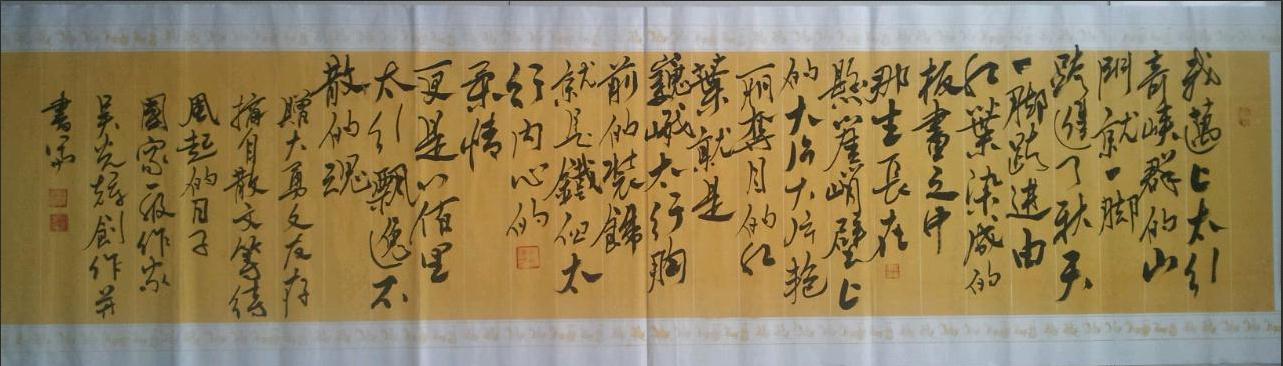 我邁上太行
奇峽群的山
門就一腳
跨進了秋天
一腳踏進由
红葉染成的
板畫之中
那生長在
懸崖峭壁上
的大片大片艳
丽奪目的红
葉就是
巍峨太行胸
前的裝飾
就是鐵但太
行内心的
柔情
更是八百里
太行飄逸不
散的魂
贈大勇文友存
摘自散文等待
風起的日子
國家一级作家
吴光辉創作并
書